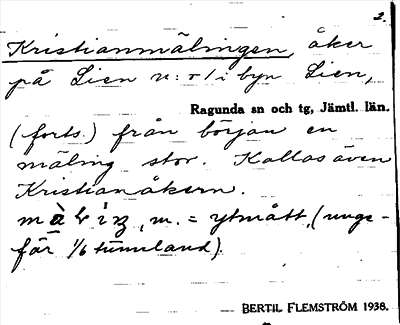 2.
Kristianmälingen, åker
på Lien n:r 1 i byn Lien,
Ragunda sn och tg, Jämtl. län.
(forts.) från början en
mäling stor. Kallas även
Kristianåkern.
m. = ytmått, (unge-
fär 1/6 tunnland).
BERTIL FLEMSTRÖM 1938.